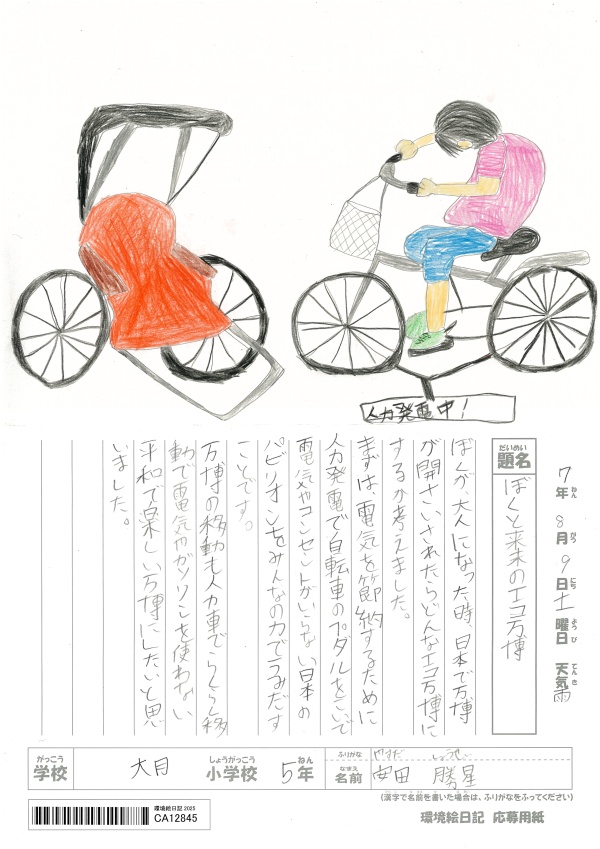 人力発電中!
だいめい
題名
ぼくと来来のエコ万博
7年 8月 9日 土曜日 天気 雨
ねん がつ にち ようび てんき
ぼくが、大人になった時、日本で万博
が開さいされたらどんなエコ万博に
するか考えました。
まずは、電気を節納するために
人力発電で自転車のプダルをこいで
電気やコンセントがいらない日本の
パビリオンをみんなの力でうみだす
ことです。
万博の移動も人力車でらくらく移
動で電気やガソリンを使わない
平和で楽しい万博にしたいと思
いました。
がっこう
学校
大月
しょうがっこう
小学校
5年
ねん
ふりがな
やすだ しょうせい
なまえ
名前
安田 勝星
(漢字で名前を書いた場合は、ふりがなをふってください)
環境絵日記 2025
CA12845
環境絵日記 応募用紙